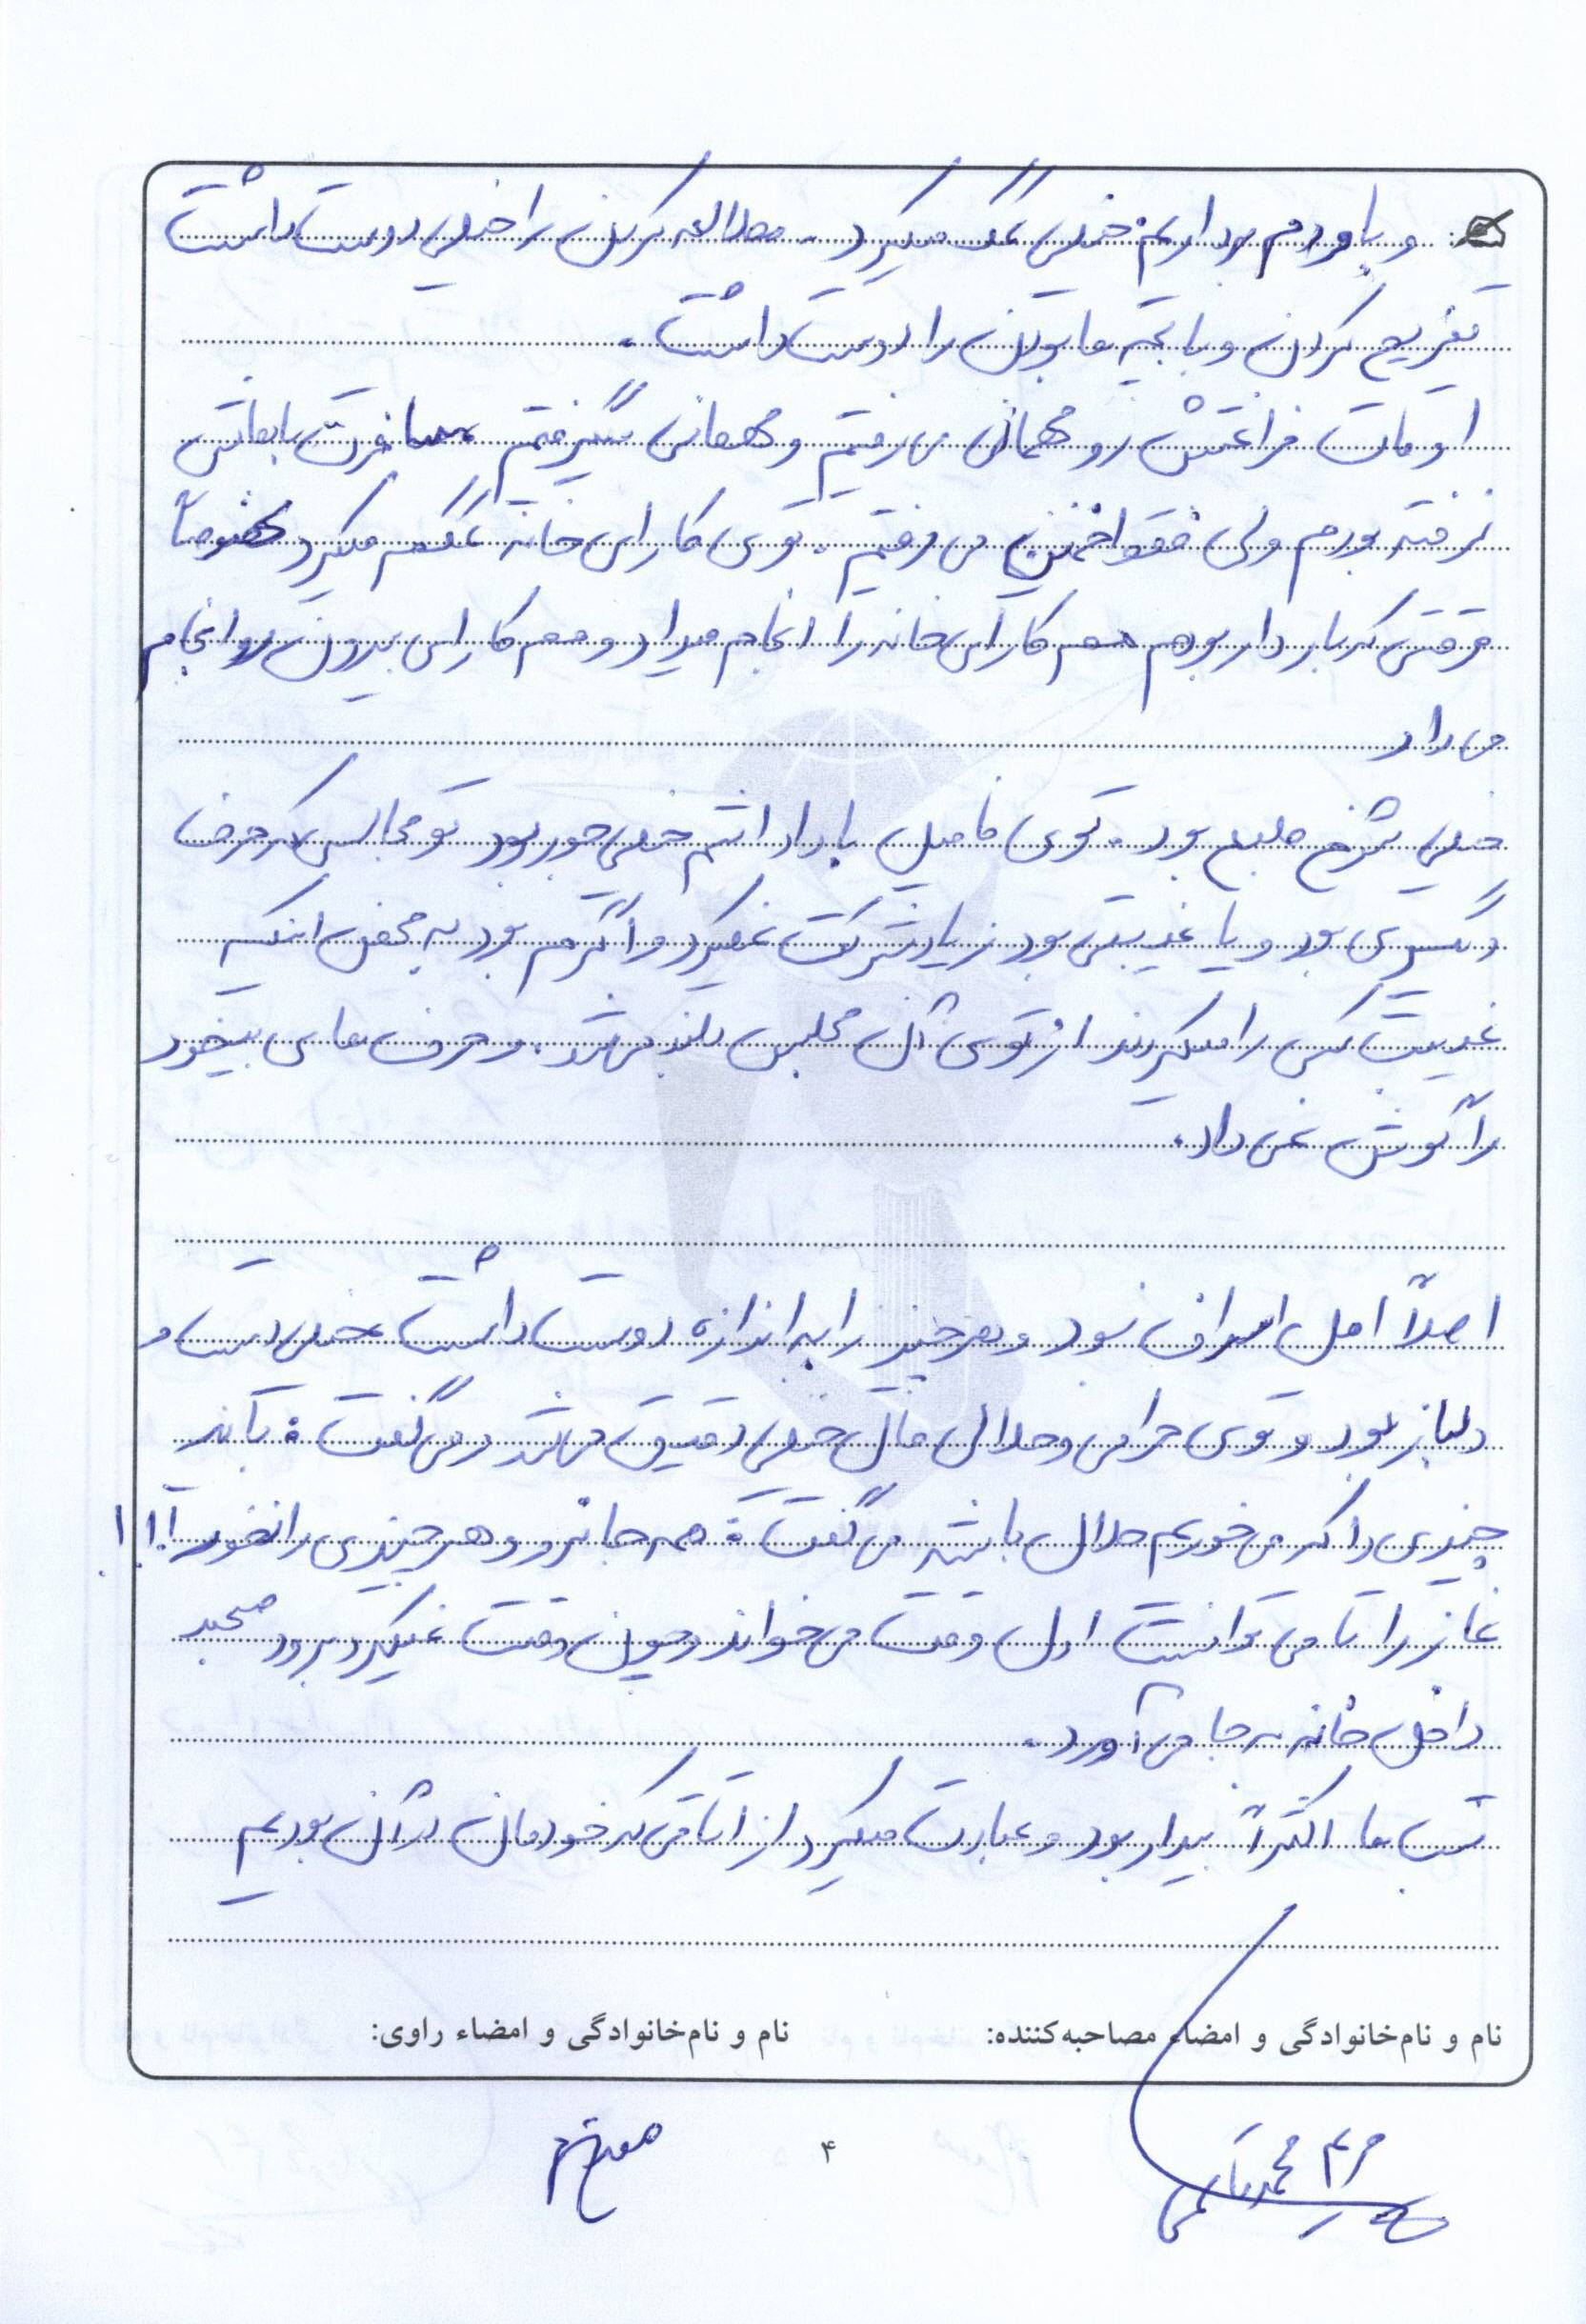 و با مردم بودار یم خیلی کمک میکرد. مطالعه کردن را خیلی دوست داشت
تفریح کردن و با بچه ها بودن را دوست داشت.
اوقات فراغتش رو مهمانی می رفتیم و مهمانی میگرفتیم مسافرت باهاش
نرفته بودم ولی فقط می رفتیم. توی کارای خانه کمکم میکرد مخصوصاً
موقعی که باردار بودم هم کارای خانه را انجام میداد و هم کارای بیرون رو انجام
می داد
خیلی شوخ طبع بود. توی فامیل با داداشم خیلی جور بود تو مجالسی که حرف
دیگری بود و یا غیبتی بود زیاد شرکت نمیکرد و اگرم بود به محض اینکه
غیبت کسی را میکردند از توی آن مجلس بلند می شد. و حرف های بیخود
را گوش نمی داد.
اصلاً اهل اسراف نبود و هر چیز را به اندازه دوست داشت خیلی دست و
دلباز بود و توی حرامی و حلالی مال خیلی دقیق می شد و می گفت: باید
چیزی را که می خوریم حلال باشه می گفت: همه جا نرو و هر چیزی را نخور!!!
نماز را تا می توانست اول وقت می خواند و چون وقت نمیکرد برود مسجد
داخل خانه به جا می آورد.
شب ها اکثراً بیدار بود و عبادت میکرد از اتاقی که خودمان در آن بودیم
نام و نام‌خانوادگی و امضاء مصاحبه‌کننده: نام و نام‌خانوادگی و امضاء راوی:
مریم محمدقاسمی
۴